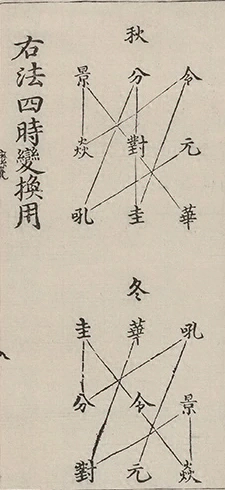 秋
令分景
元對焱
華圭吼
冬
吼華圭
景令分
焱元對
右法四時變換用